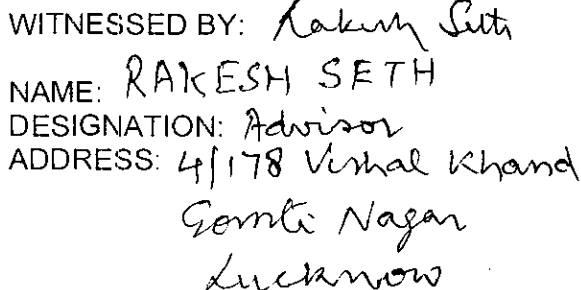 WITNESSED BY: Rakesh Seth
NAME: RAKESH SETH
DESIGNATION: Advisor
ADDRESS: 4/178 Vishal Khand
Gomti Nagar
Lucknow